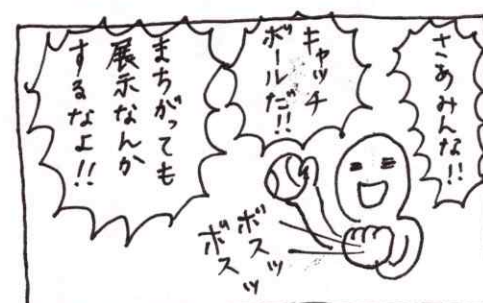 さあみんな!!
キャッチ
ボールだ!!
まちがっても
展示なんか
するなよ!!
ボスッ
ボスッ